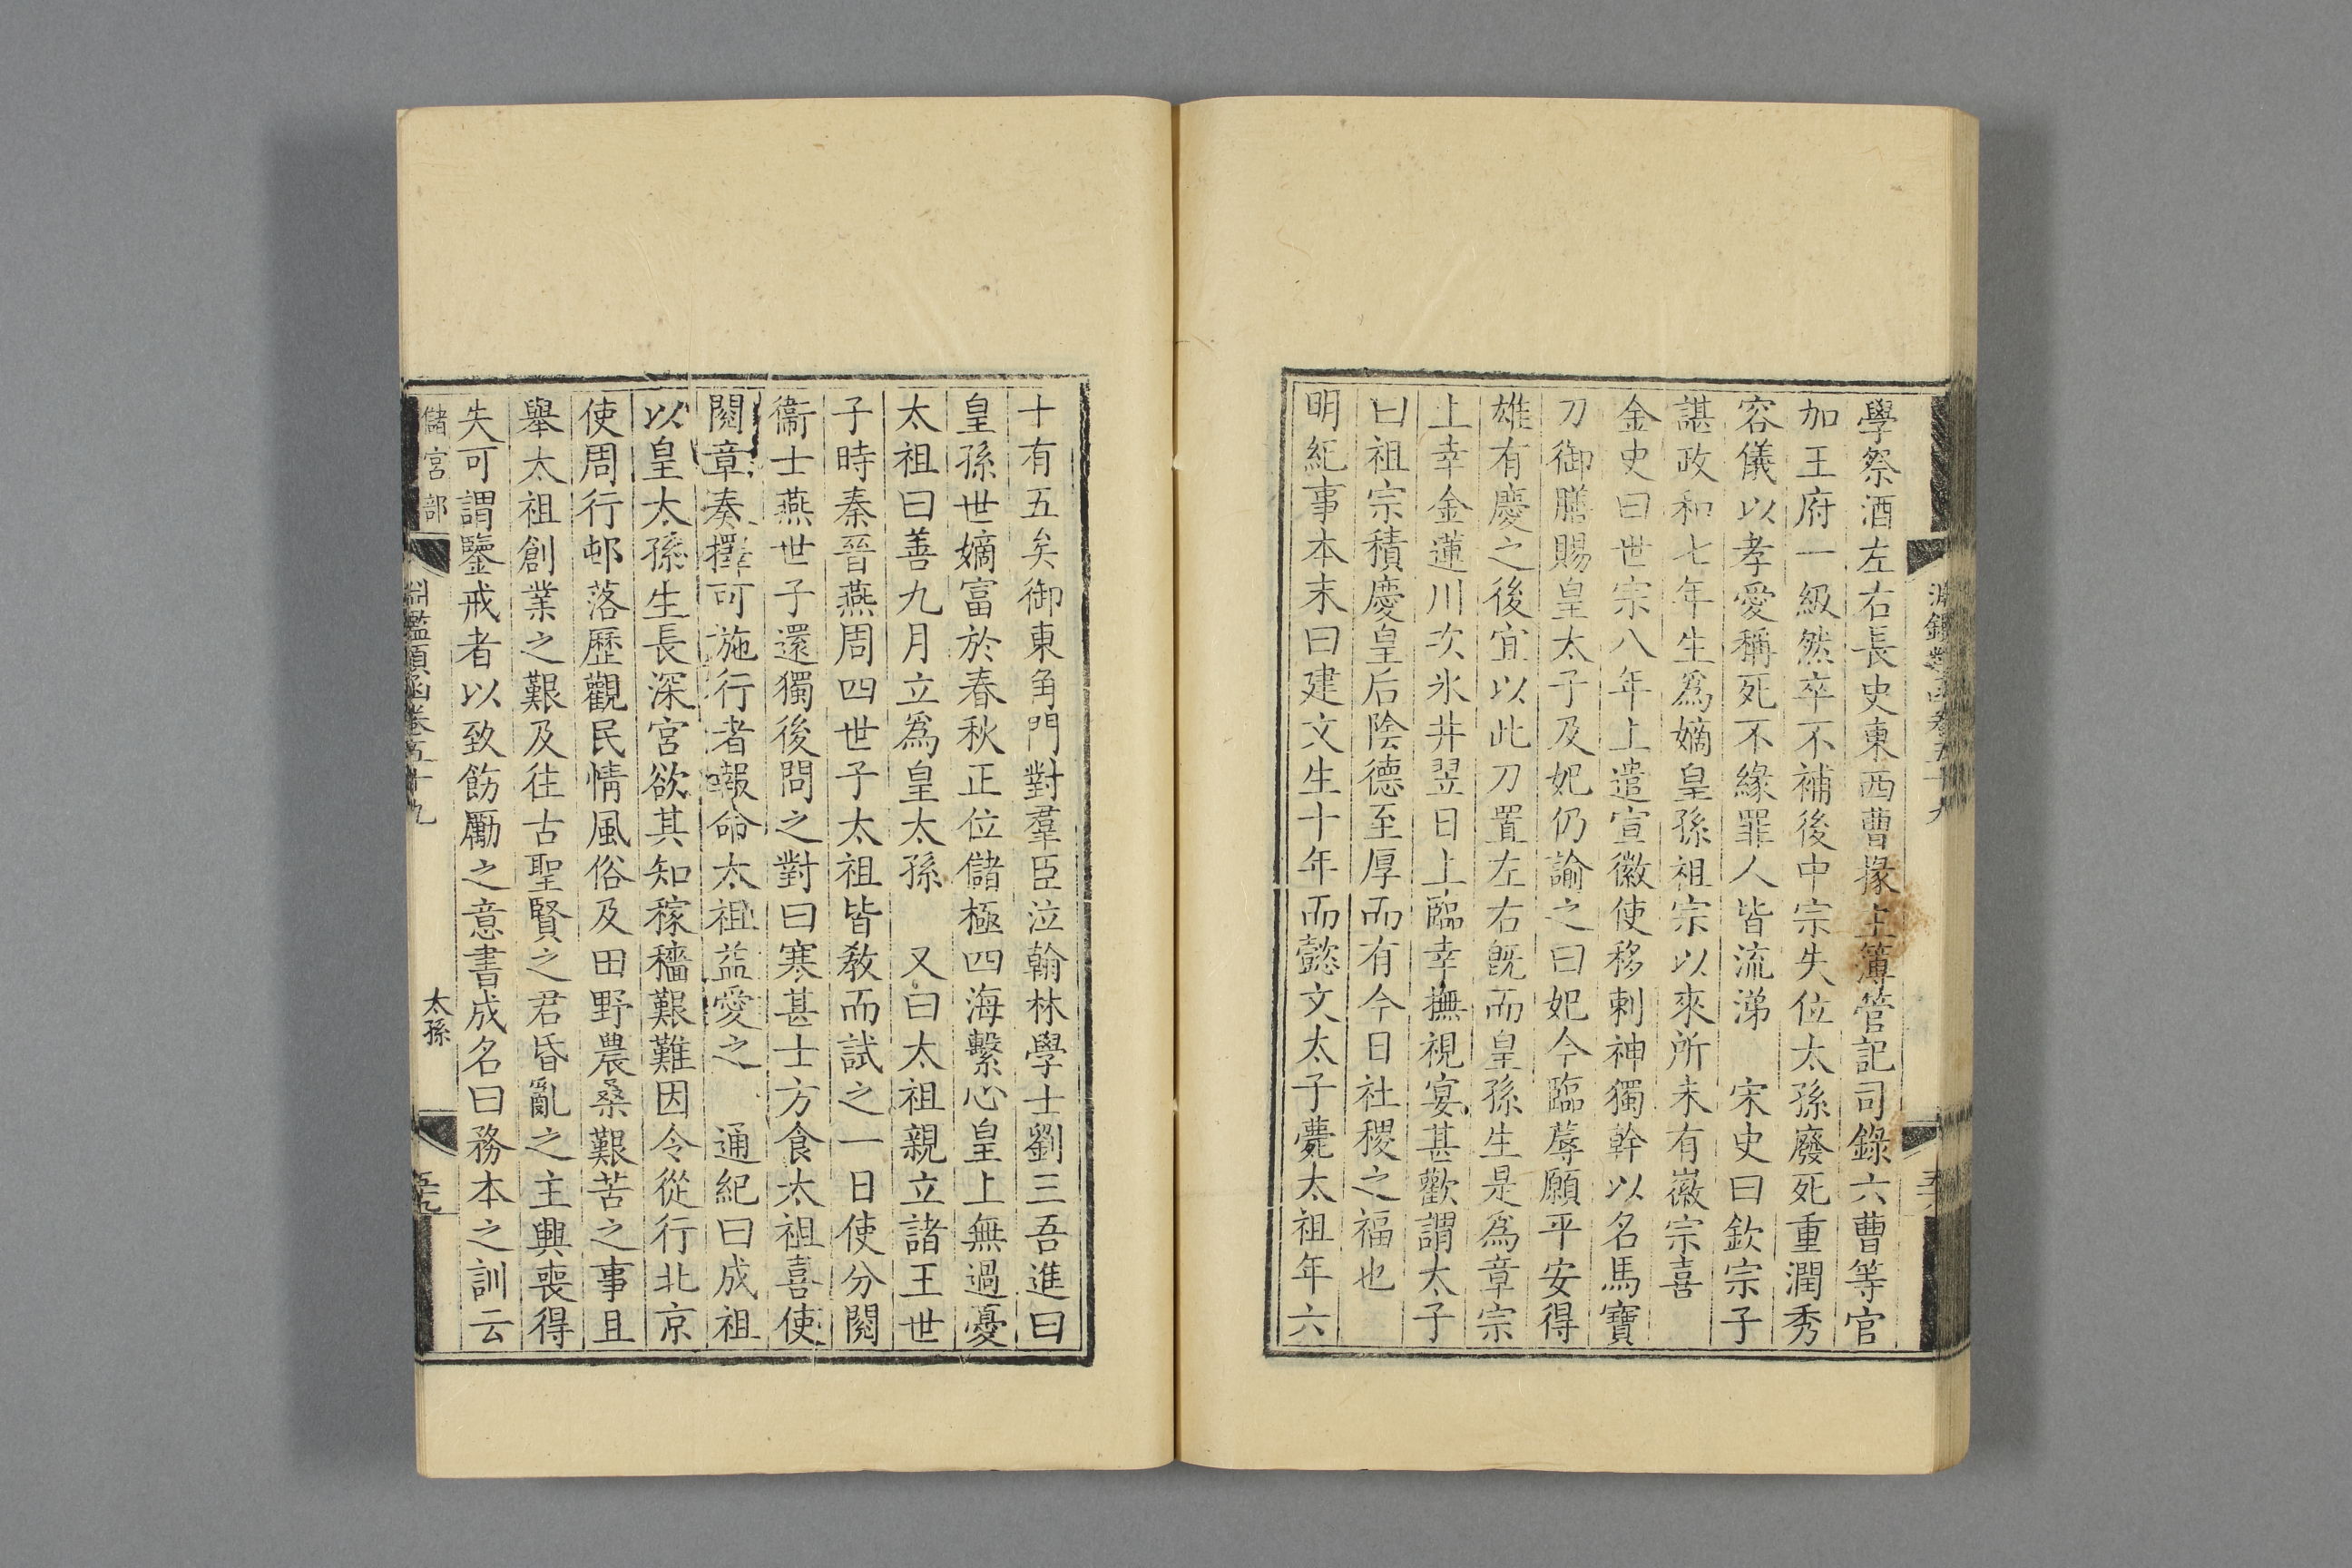 學祭酒左右長史東西曹掾主簿管記司錄六曹等官
加王府一級然卒不補後中宗失位太孫廢死重潤秀
容儀以孝愛稱死不緣罪人皆流涕　宋史曰欽宗子
諶政和七年生爲嫡皇孫祖宗以來所未有徽宗喜
金史曰世宗八年上遣宣徽使移剌神獨幹以名馬寶
刀御膳賜皇太子及妃仍諭之曰妃今臨蓐願平安得
雄有慶之後宜以此刀置左右旣而皇孫生是爲章宗
上幸金蓮川次氷井翌日上臨幸撫視宴甚歡謂太子
曰祖宗積慶皇后陰德至厚而有今日社稷之福也
明紀事本末曰建文生十年而懿文太子薨太祖年六
十有五矣御東角門對羣臣泣翰林學士劉三吾進曰
皇孫世嫡富於春秋正位儲極四海繫心皇上無過憂
太祖曰善九月立爲皇太孫　又曰太祖親立諸王世
子時秦晉燕周四世子太祖皆敎而試之一日使分閱
衞士燕世子還獨後問之對曰寒甚士方食太祖喜使
閱章奏擇可施行者報命太祖益愛之　通紀曰成祖
以皇太孫生長深宮欲其知稼穡艱難因令從行北京
使周行邨落歷觀民情風俗及田野農桑艱苦之事且
舉太祖創業之艱及往古聖賢之君昏亂之主興喪得
失可謂鑒戒者以致飭勵之意書成名曰務本之訓云
儲宮部
淵鑑類函卷五十九
太孫